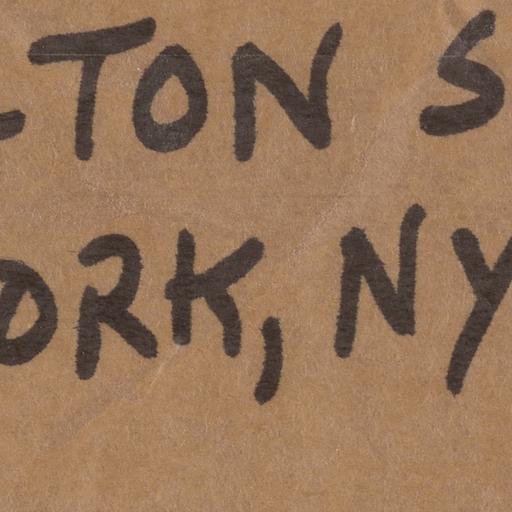 TON S
ORK, NY